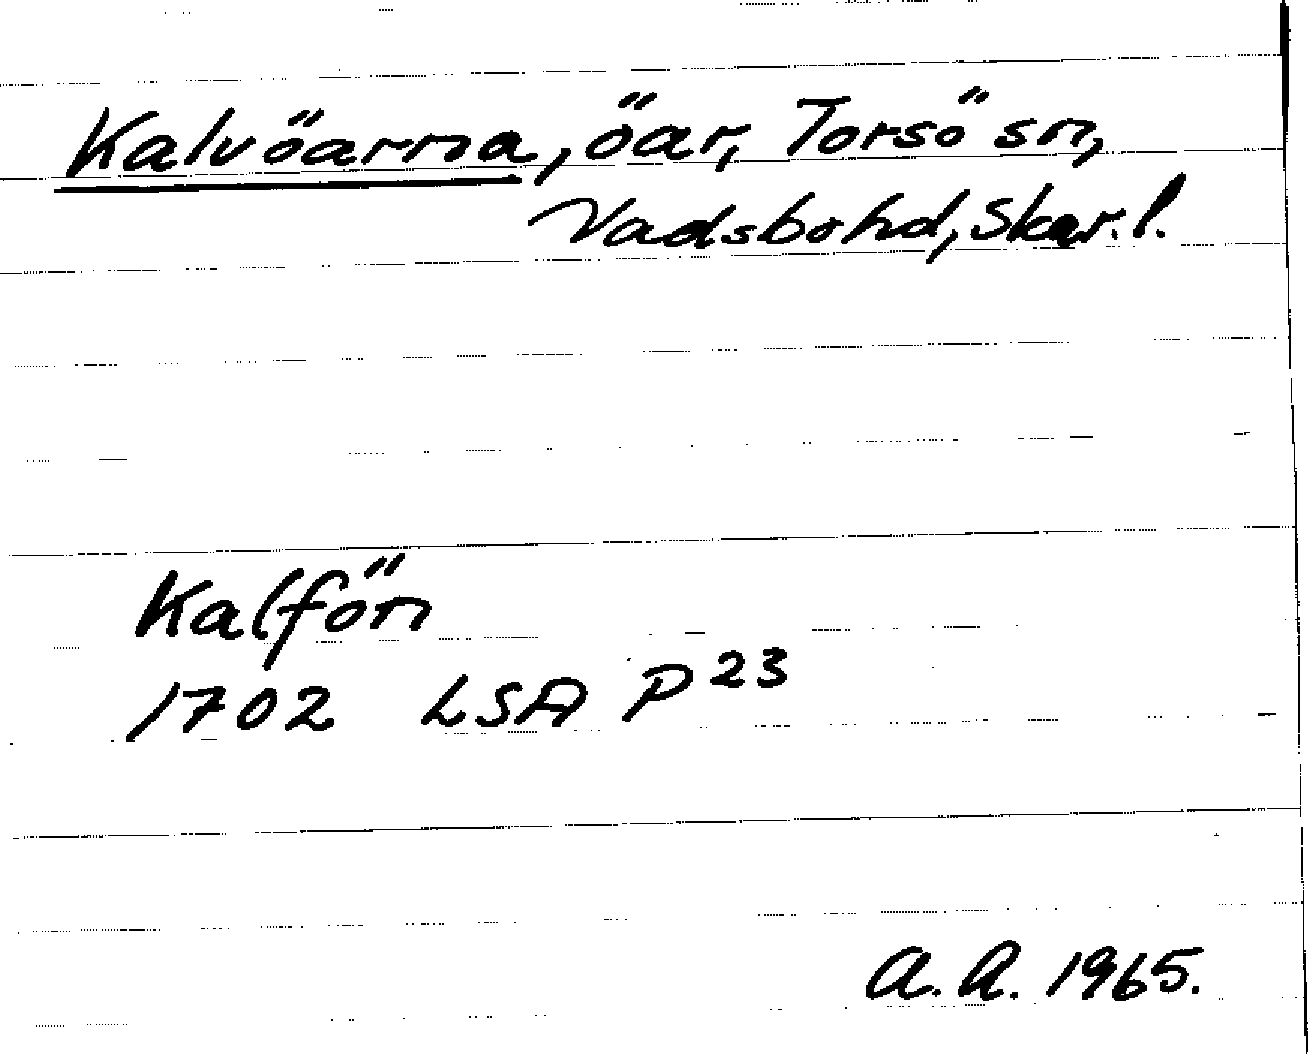 Kalvöarna, öar, Torsö sn,
Vadsbo hd, Skar. l.
Kalfön
1702 LSA P 23
A. A. 1965.